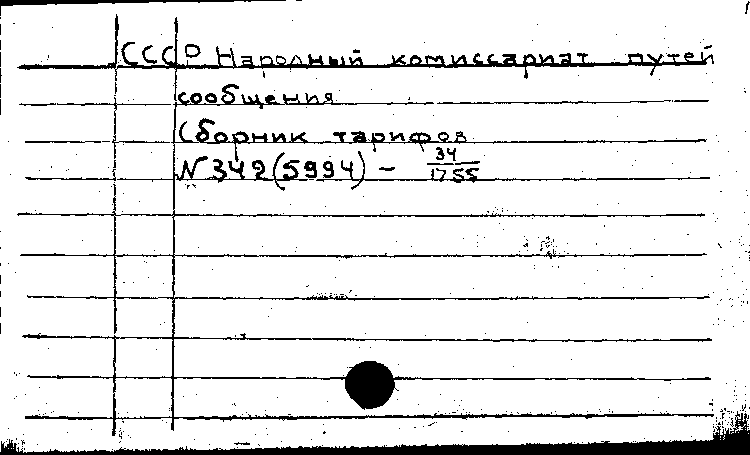 СССР Народный комиссариат путей
сообщения
Сборник тарифов
№ 342(5994) - 34/1755